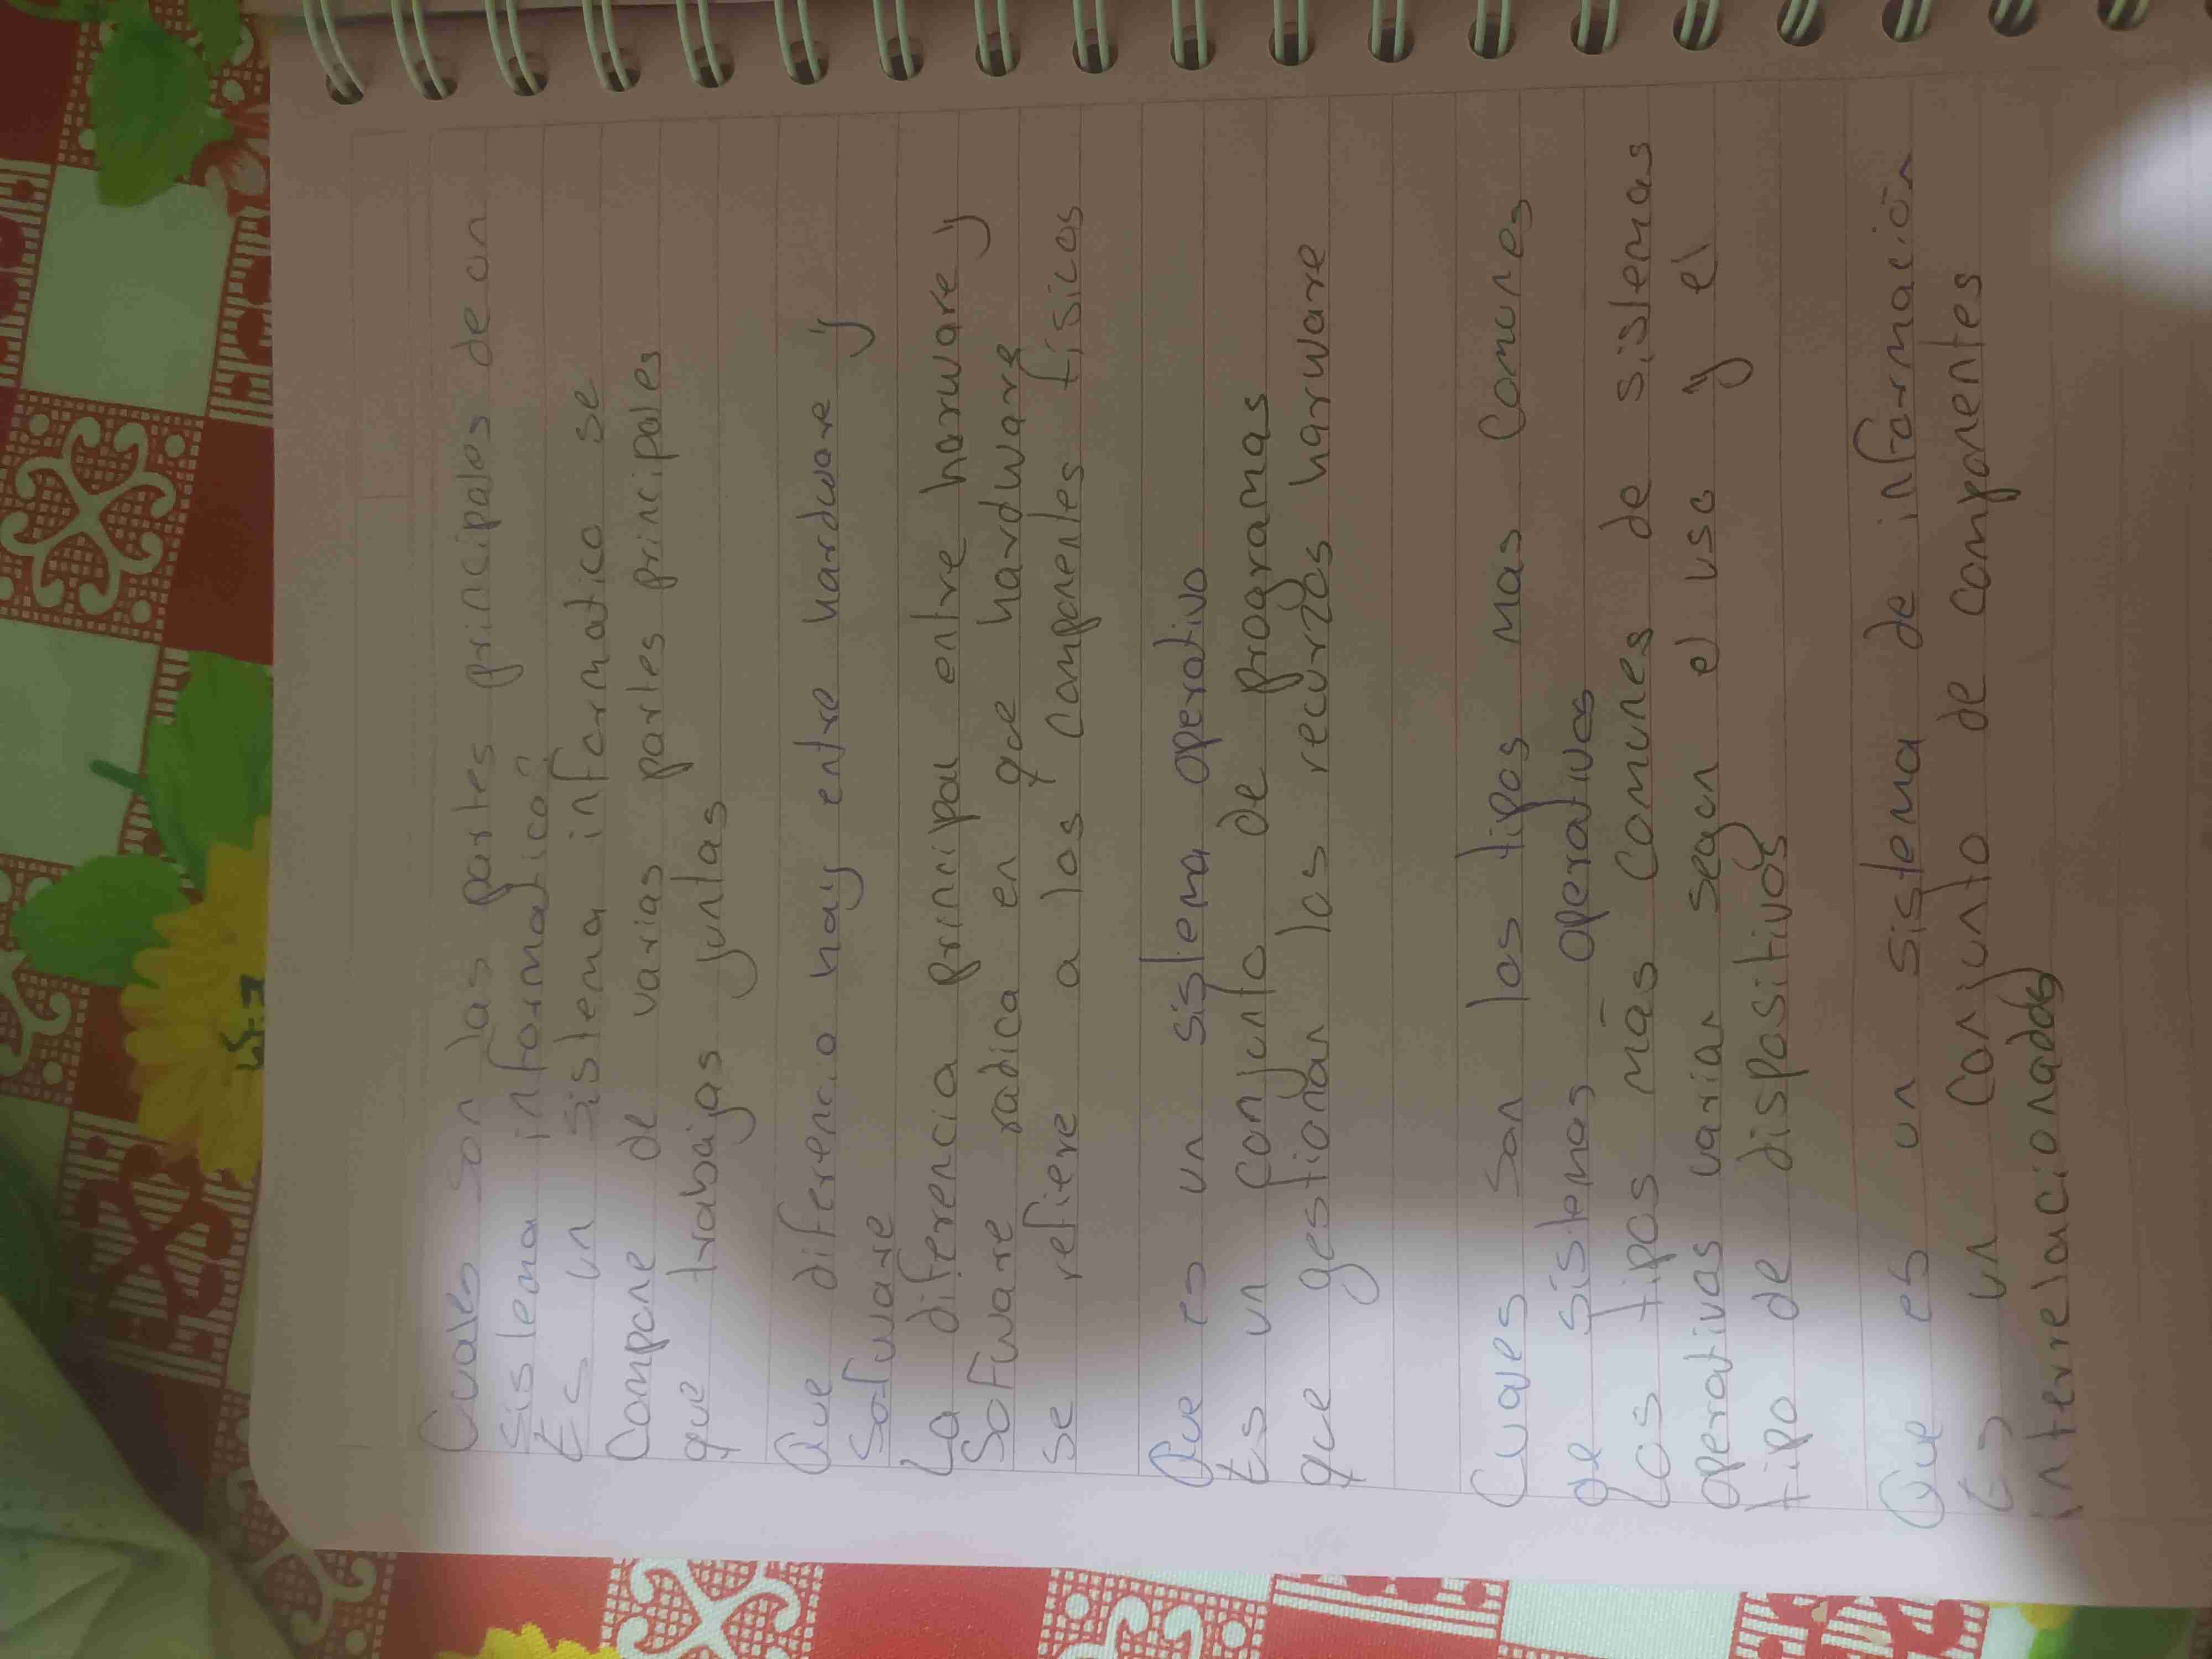 Cuales son las partes principales de un
sistema informatico?
Es un sistema informatico se
Compone de varias partes principales
que trabajas juntas
Que diferencia hay entre hardware y
Software
La diferencia principal entre harware y
Software radica en que hardware
se refiere a los componentes físicos
Que es un sistema operativo
Es un conjunto de programas
que gestionan los recurzos harware
Cuales son los tipos mas comunes
de sistemas operativos
Los tipos más comunes de sistemas
operativos varian segun el uso y el
tipo de dispositivos
Que es un sistema de información
Es un conjunto de componentes
interrelacionados